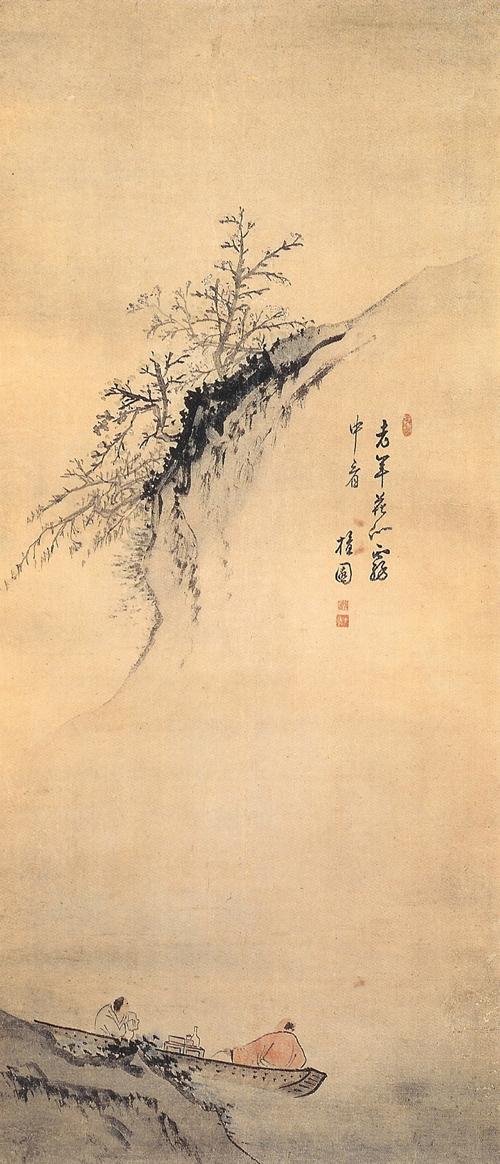 老年花似霧
中看 檀園